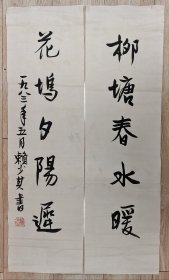 柳塘春水暖
花塢夕陽遲
一九八三年五月賴少其書